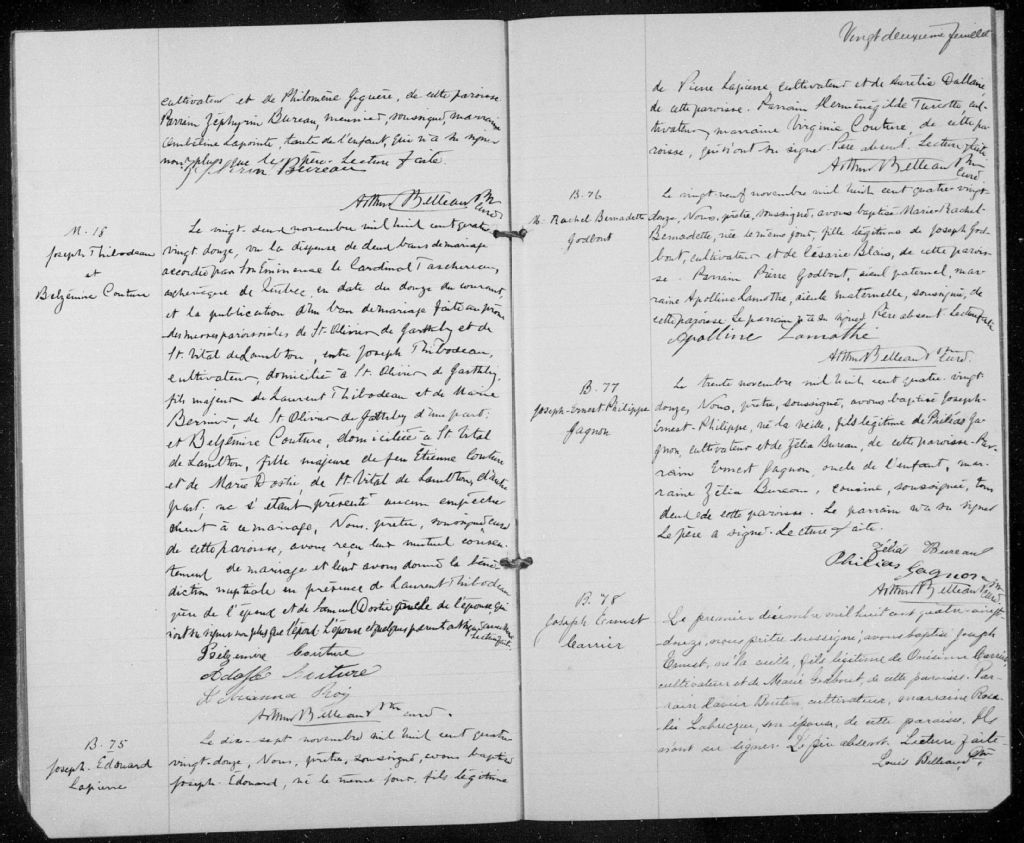 cultivateur et de Philomène Giguère, de cette paroisse
Parrain Zéphyrin Bureau, meunier, soussigné, marraine
Ombéline Lapointe, tante de l'enfant, qui n'a su signer
non plus que le Père. Lecture faite.
Zéphirin Bureau
Arthur Belleau Ptre
curé
M. 18
Joseph Thibodeau
et
Belzémire Couture
Le vingt-deux novembre mil huit cent quatre
vingt-douze, vu la dispense de deux bans de mariage
accordée par Son Eminence le Cardinal Taschereau,
archevêque de Québec, en date du douze du courant
et la publication d'un ban de mariage faite au prône
des messes paroissiales de St. Olivier de Garthby et de
St. Vital de Lambton, entre Joseph Thibodeau,
cultivateur, domicilié à St. Olivier de Garthby,
fils majeur de Laurent Thibodeau et de Marie
Bernier, de St Olivier de Garthby d'une part;
et Belzémire Couture, domiciliée à St Vital
de Lambton, fille majeure de feu Etienne Couture
et de Marie Dostie, de St. Vital de Lambton, d'autre
part; ne s'étant présenté aucun empêche
ment à ce mariage, Nous, prêtre, soussigné, curé
de cette paroisse, avons reçu leur mutuel consen-
tement de mariage et leur avons donné la béné
diction nuptiale en présence de Laurent Thibodeau
père de l'époux et de Samuel Dostie oncle de l'épouse qui
n'ont su signer non plus que l'époux. L'épouse et quelques parents
Lecture faite.
Belzemire Couture
Adolphe Couture
Arthur Belleau Ptre
curé.
B. 75
Joseph-Edouard
Lapierre
Le dix-sept novembre mil huit cent quatre
vingt-douze, Nous, prêtre, soussigné, avons baptisé
Joseph-Edouard, né le même jour, fils légitime
Vingt deuxième feuillet
de Pierre Lapierre, cultivateur et de Aurélie Dallaire,
de cette paroisse. Parrain Herménégilde Turcotte, cul-
tivateur, marraine Virginie Couture, de cette pa
roisse, qui n'ont su signer. Père absent. Lecture faite
Arthur Belleau Ptre
curé
B. 76
M. Rachel Bernadette
Godbout
Le vingt-neuf novembre mil huit cent quatre-vingt
douze, Nous, prêtre, soussigné, avons baptisé Marie-Rachel-
Bernadette, née le même jour, fille légitime de Joseph God-
bout, cultivateur et de Césarie Blais, de cette parois-
se. Parrain Pierre Godbout, aieul paternel, mar-
raine Apolline Lamothe, aieule maternelle, soussignée, de
cette paroisse. Le parrain n'a su signer. Père absent. Lecture faite
Apolline Lamothe
Arthur Belleau Ptre
curé.
B. 77
Joseph-Ernest Philippe
Gagnon
Le trente novembre mil huit cent quatre-vingt-
douze, Nous, prêtre, soussigné, avons baptisé Joseph-
Ernest-Philippe, né la veille, fils légitime de Philéas Ga-
gnon, cultivateur et de Zélia Bureau, de cette paroisse. Par-
rain Ernest Gagnon oncle de l'enfant, mar-
raine Zélia Bureau, cousine, soussignée, tous
deux de cette paroisse. Le parrain n'a su signer
Le père a signé. Lecture faite.
Zélia Bureau
Philéas Gagnon
Arthur Belleau Ptre
curé
B. 78
Joseph Ernest
Carrier
Le premier décembre mil huit cent quatre-vingt-
douze, nous prêtre soussigné, avons baptisé Joseph
Ernest, né la veille, fils légitime de Onésime Carrier,
cultivateur et de Marie Godbout, de cette paroisse. Par-
rain Xavier Boutin cultivateur, marraine Rosa-
lie Labrecque, son épouse, de cette paroisse. Ils
n'ont su signer. Le père absent. Lecture faite.
Louis Belleau, Ptre